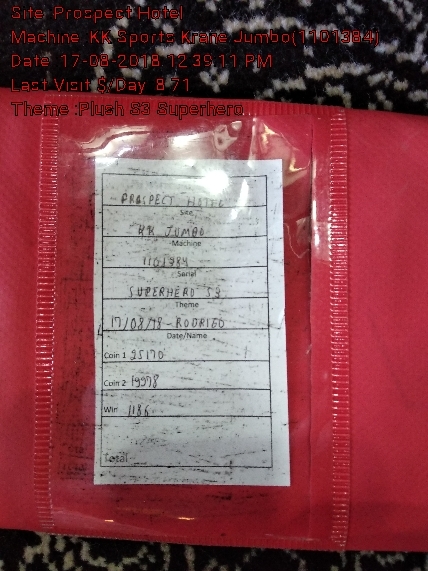 Site :Prospect Hotel
Machine :KK Sports Krane Jumbo(1101384)
Date :17-08-2018 12:39:11 PM
Last Visit $/Day :8.71
Theme :Plush S3 Superhero
PROSPECT HOTEL
Site
KK JUMBO
Machine
1101384
Serial
SUPERHERO S3
Theme
17/08/18 - RODRIGO
Date/Name
Coin 1 25170
Coin 2 19978
Win 1186
Total